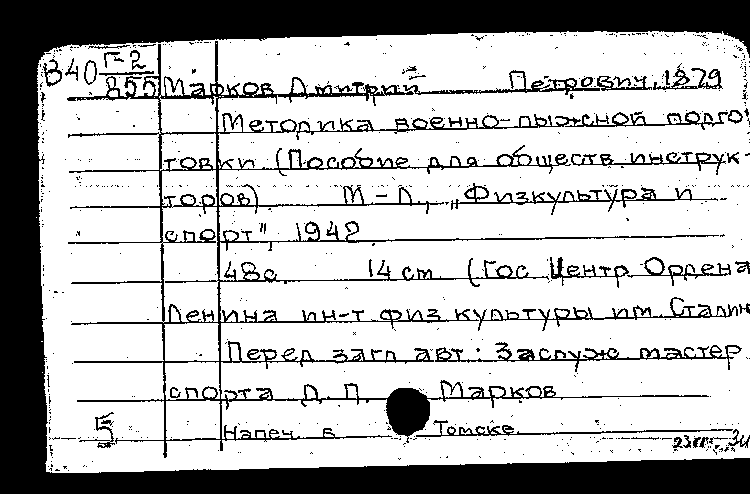 В40 Г-2
855 Марков, Дмитрий Петрович, 1879
Методика военно-лыжной подго
товки (Пособие для обществ. инструк-
торов) М-Л., „Физкультура и
спорт", 1942.
48с. 14 см. (Гос Центр Ордена
Ленина ин-т физ культуры им. Сталин
Перед загл авт: Заслуж мастер
спорта Д. П. Марков
5 Напеч. в Томске.